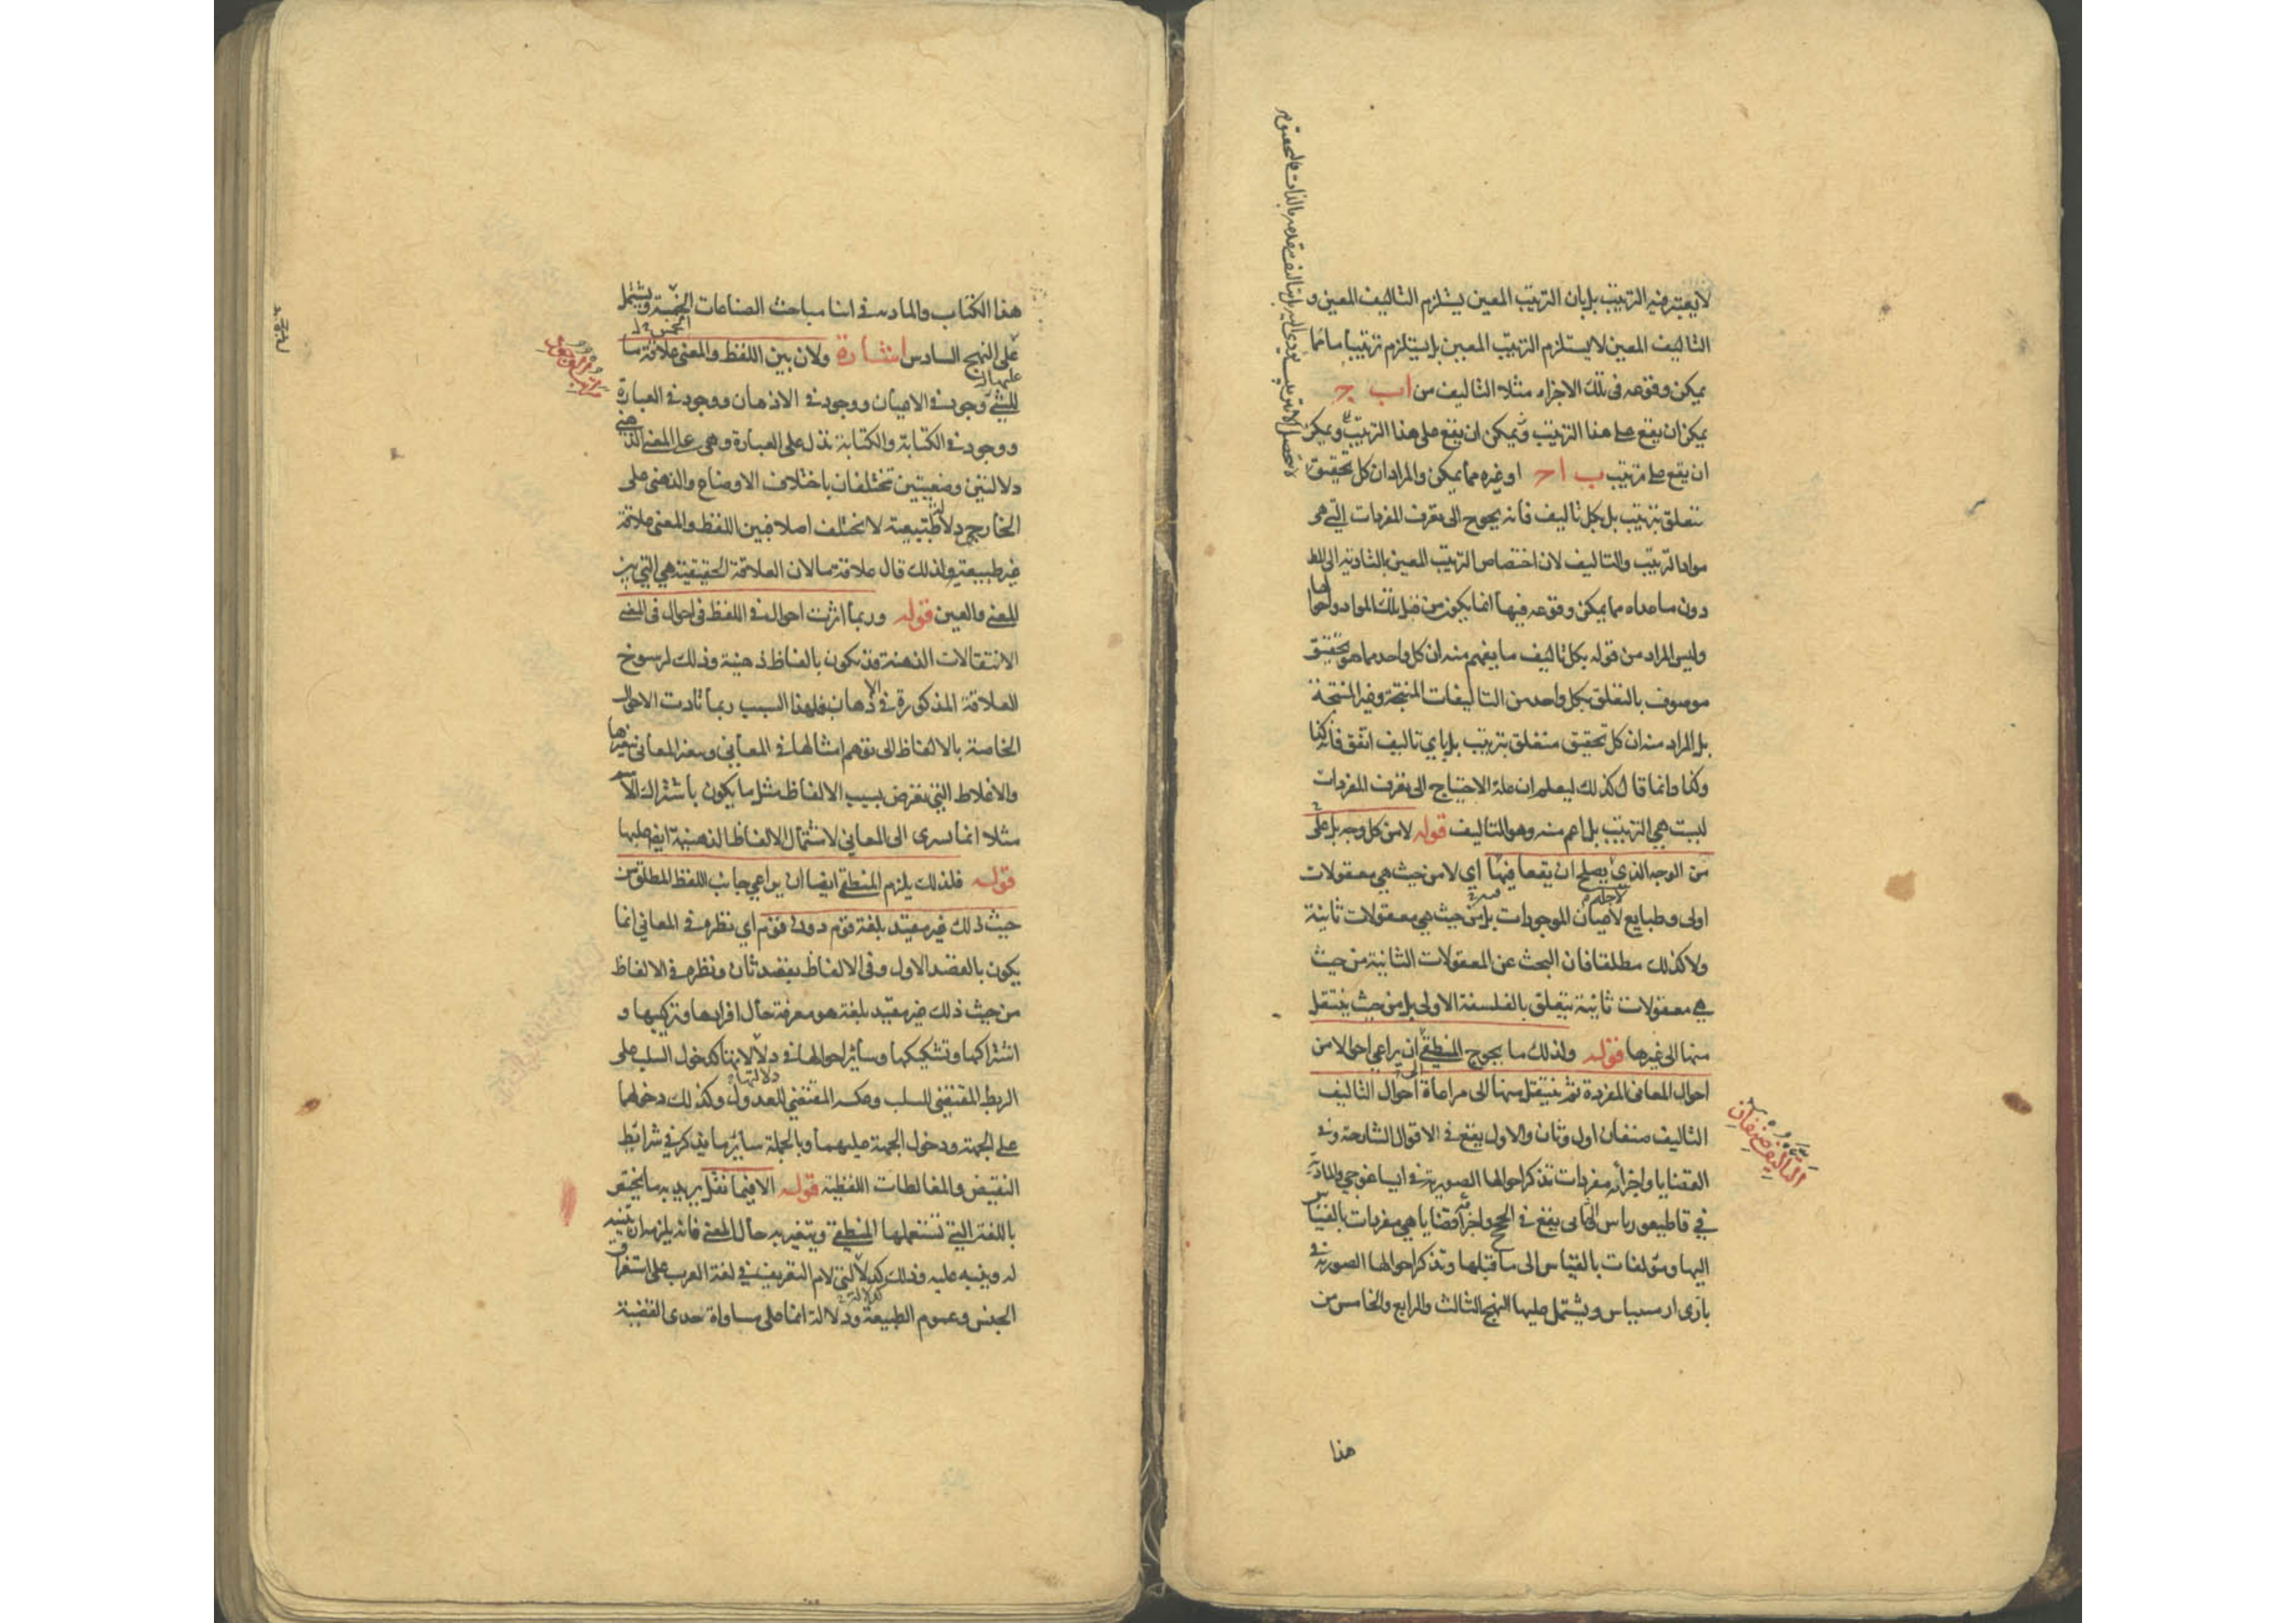 لا يعتبر فيه الترتيب بل بان الترتيب المعين يستلزم التاليف المعين و
التاليف المعين لا يستلزم الترتيب المعين بل يستلزم ترتيبا ما مما
يمكن وقوعه فى تلك الاجزاء مثلا التاليف من ا ب ج
يمكن ان يقع على هذا الترتيب ويمكن ان يقع على هذا الترتيب ويمكن
ان يقع على ترتيب ب ا ج او غيره مما يمكن والمراد ان كل تحقيق
تتعلق بترتيب بل بكل تاليف فانه يحوج الى تعرف المفردات التي هى
مواد الترتيب والتاليف لان اختصاص الترتيب المعين بالتادية الى المط
دون ما عداه مما يمكن وقوعه فيها انما يكون من قبل تلك المواد واحوالها
وليس المراد من قوله بكل تاليف ما يفهم منه ان كل واحد مما هو تحقيق
موصوف بالتعلق بكل واحد من التاليفات المنتجة وغير المنتجة
بل المراد منه ان كل تحقيق متعلق بترتيب بل باي تاليف اتفق فانه كذا
وكذا وانما قال كذلك ليعلم ان علة الاحتياج الى تعرف المفردات
ليست هي الترتيب بل اعم منه وهو التاليف قوله لا من كل وجه بل على
من الوجه الذي لاجله يصلح ان يقعا فيها اي لا من حيث هي معقولات
اولى وطبايع لاعيان الموجودات بل من حيث هي معقولات ثانية
ولا كذلك مطلقا فان البحث عن المعقولات الثانية من حيث
هي معقولات ثانية يتعلق بالفلسفة الاولى بل من حيث ينتقل
منها الى غيرها قوله ولذلك ما يحوج المنطقي الى ان يراعي احوالا من
احوال المعانى المفردة ثم ينتقل منها الى مراعاة احوال التاليف
التاليف صنفان اول وثان والاول يقع في الاقوال الشارحة وفي
القضايا واجزائه مفردات تذكر احوالها الصورية في ايساغوجي والمادية
في قاطيغورياس والثانى يقع في الحجج واجزائه قضايا هي مفردات بالقياس
اليها ومؤلفات بالقياس الى ما قبلها وتذكر احوالها الصورية في
بارى ارمينياس ويشتمل عليها النهج الثالث والرابع والخامس من
التاليف صنفان
هذا
هذا الكتاب والمادية في اثنا مباحث الصناعات الخمس ويشتمل
على النهج السادس اشارة ولان بين اللفظ والمعنى علاقة ما
للشئ وجود في الاعيان ووجود في الاذهان ووجود في العبارة
ووجود في الكتابة والكتابة تدل على العبارة وهى على المعنى الذهني
دلالتين وضعيتين تختلفان باختلاف الاوضاع والذهنى على
الخارجي دلالة طبيعية لا تختلف اصلا فبين اللفظ والمعنى علاقة
غير طبيعية ولذلك قال علاقة ما لان العلاقة الحقيقية هي التي بين
المعنى والعين قوله وربما اثرت احوال في اللفظ فى احوال فى المعنى
الانتقالات الذهنية قد يكون بالفاظ ذهنية وذلك لرسوخ
العلاقة المذكورة في الاذهان فلهذا السبب ربما تادت الاحوال
الخاصة بالالفاظ الى توهم امثالها في المعاني وتغير المعانى بتغيرها
والاغلاط التي تعرض بسبب الالفاظ مثل ما يكون باشتراك الاسم
مثلا انما تسرى الى المعاني لاشتمال الالفاظ الذهنية ايض عليها
قوله فلذلك يلزم المنطقي ايضا ان يراعي جانب اللفظ المطلق من
حيث ذلك غير مقيد بلغة قوم دون قوم اي نظره في المعاني انما
يكون بالقصد الاول وفى الالفاظ بقصد ثان ونظره في الالفاظ
من حيث ذلك غير مقيد بلغة هو معرفة حال افرادها وتركيبها و
اشتراكها وتشكيكها وسائر احوالها في دلالاتها كدخول السلب على
الربط المقتضى للسلب وعكسه المقتضي للعدول وكذلك دخولهما
على الجهة ودخول الجهة عليهما وبالجملة ساير ما يذكر في شرائط
النقيض والمغالطات اللفظية قوله الا فيما نقل يريد به ما يختص
باللغة التي تستعملها المنطقي وتتغير به حال المعنى فانه يلزمه ان يتنبه
له وينبه عليه وذلك كدلالة لام التعريف في لغة العرب على استغراق
الجنس وعموم الطبيعة ودلالة انما على مساواة حدى القضية